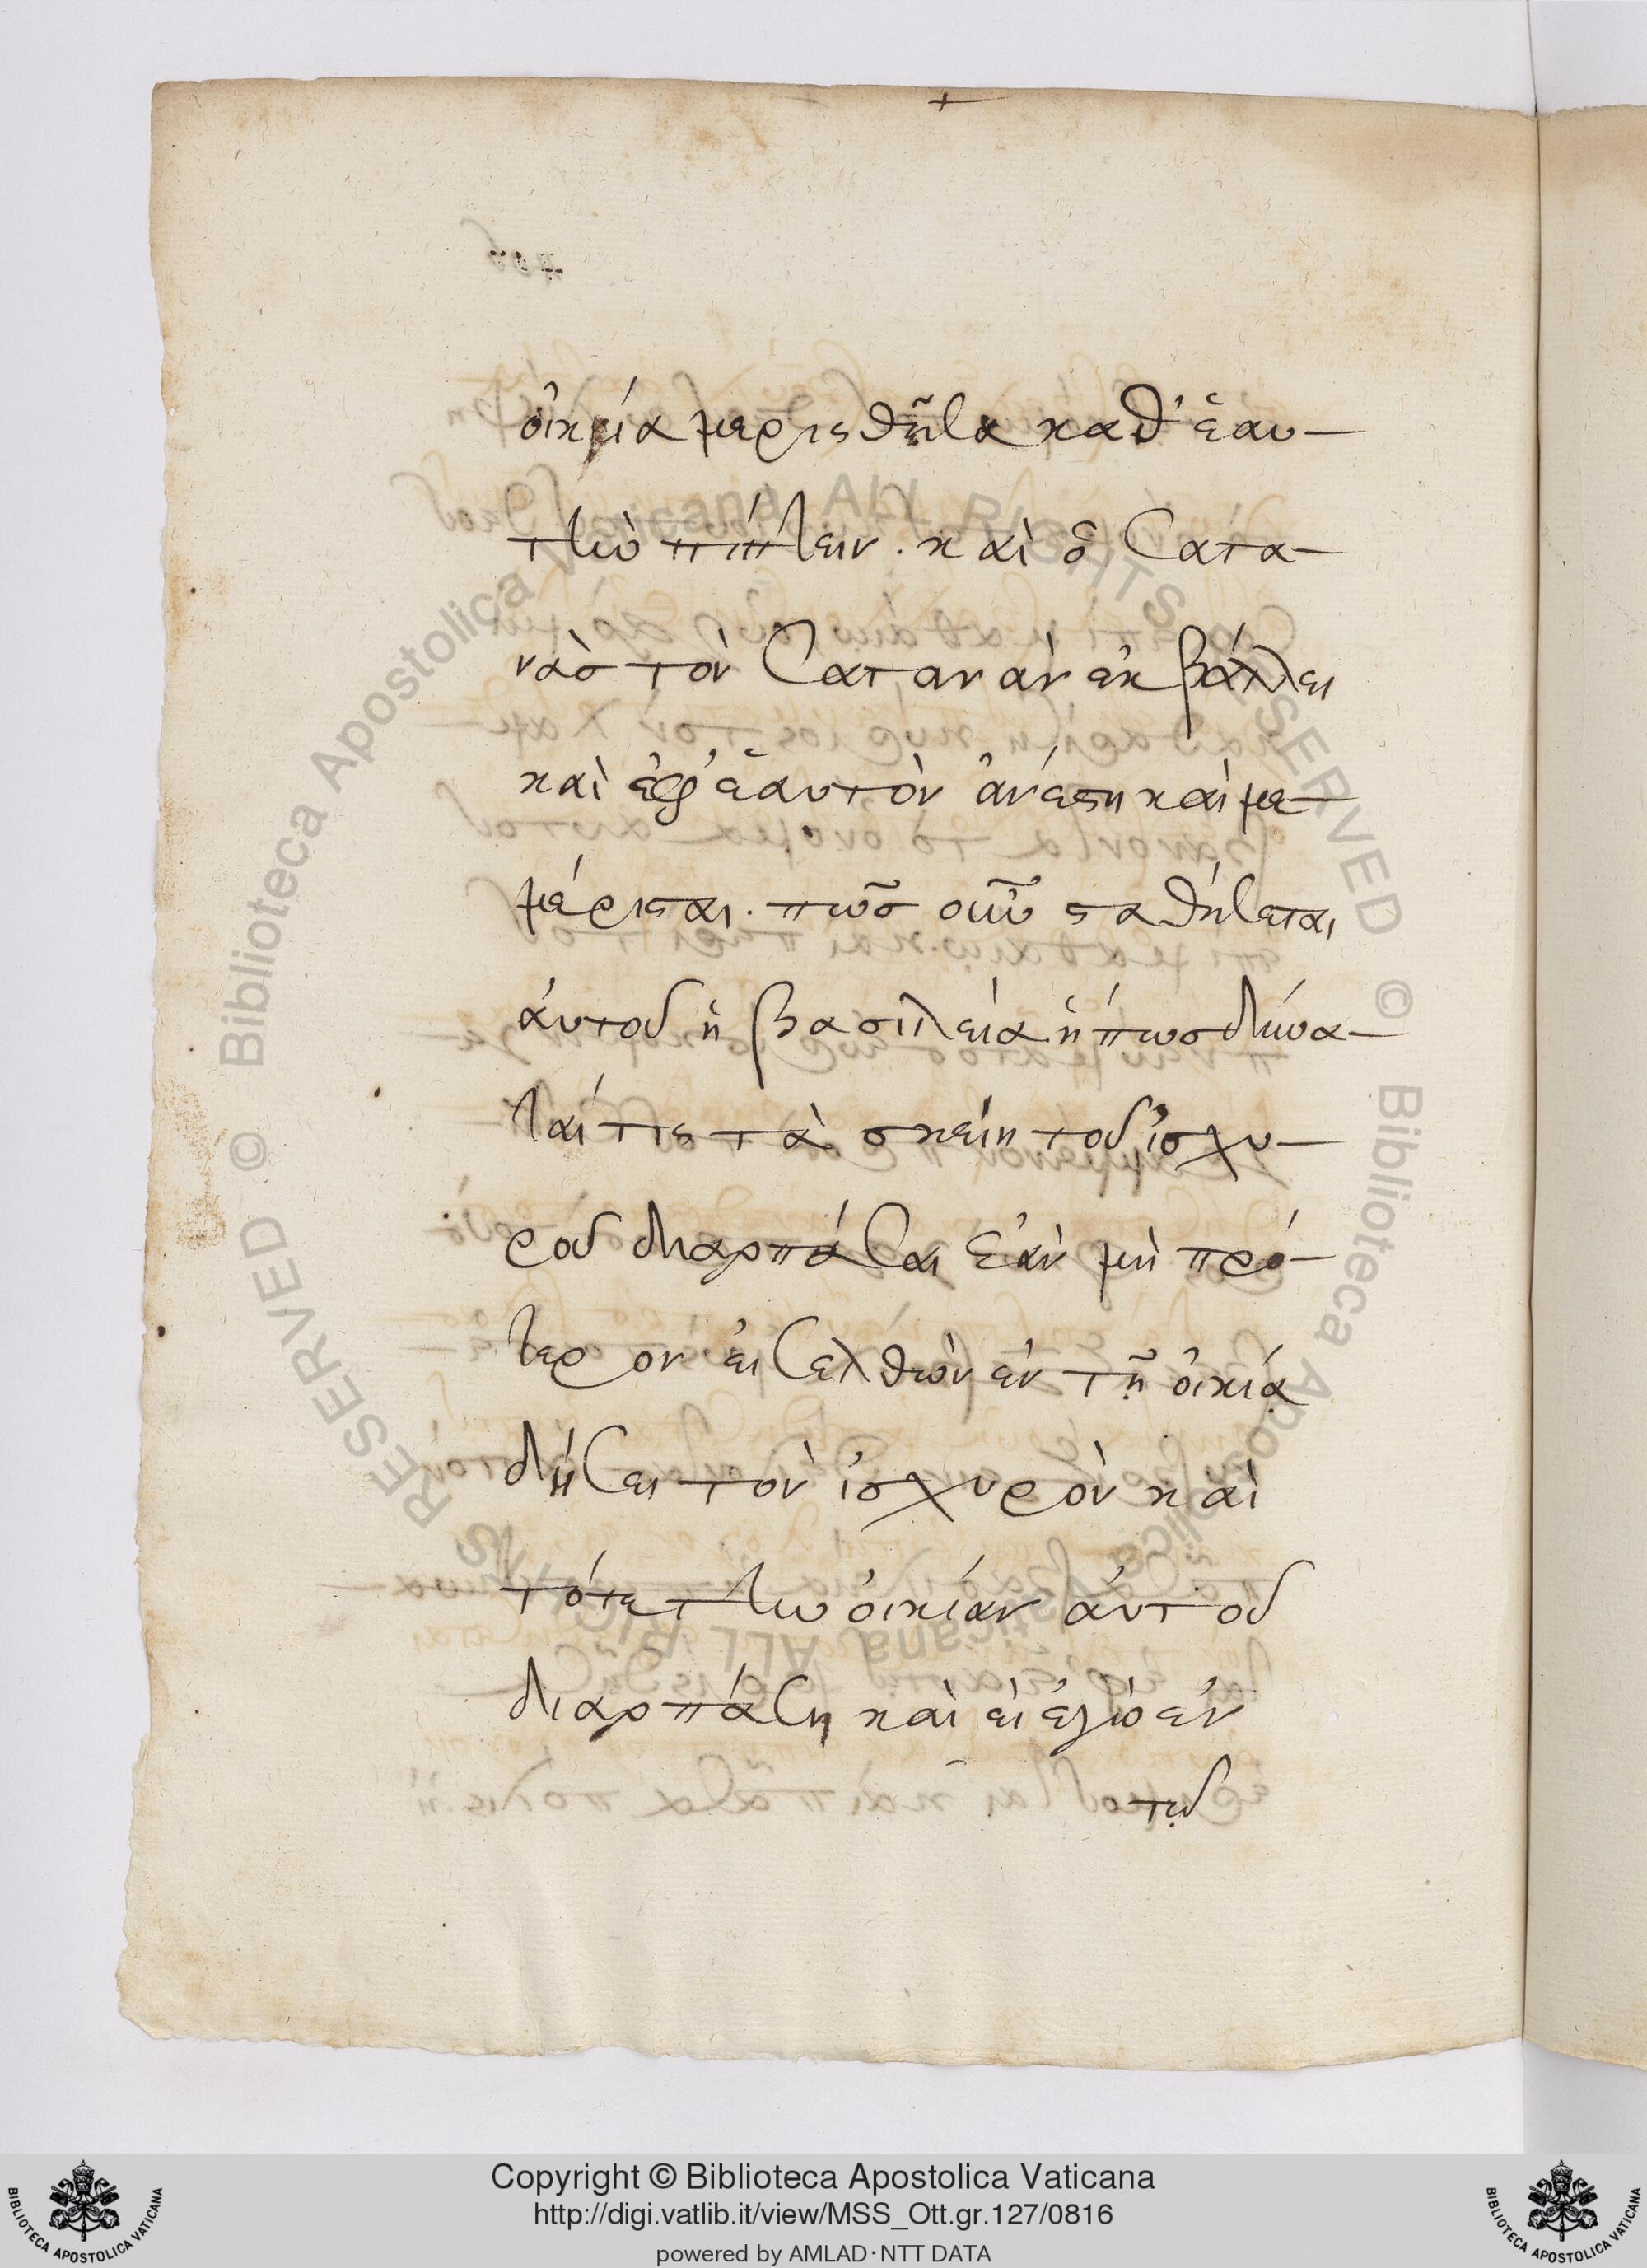 οἰκία μερισθῆσα καθ' ἑαυ-
τὴν πίπτειν. καὶ ὁ Σατα-
νὰσ τὸν Σατανὰν ἐκβάλλει
καὶ ἐφ' ἑαυτὸν ἀνέστη καὶ με-
μέρισται. πῶσ οὖν σταθήσεται
ἀυτοῦ ἡ βασιλεία ἡ πωσ δύνα-
ται τις τὰ σκεύη τοῦ ἰσχυ-
ροῦ διαρπάσαι ἐὰν μὴ πρό-
τερον εἰσελθὼν ἐν τῇ οἰκίᾳ
δήσει τὸν ἰσχυρὸν καὶ
τότε τὴν οἰκίαν ἀυτοῦ
διαρπάσῃ καὶ εἰ ἐγὼ ἐν
τῳ
Copyright © Biblioteca Apostolica Vaticana
http://digi.vatlib.it/view/MSS_Ott.gr.127/0816
powered by AMLAD·NTT DATA
BIBLIOTECA APOSTOLICA VATICANA
BIBLIOTECA APOSTOLICA VATICANA
© Biblioteca Apostolica Vaticana ALL RIGHTS RESERVED
© Biblioteca Apostolica Vaticana ALL RIGHTS RESERVED